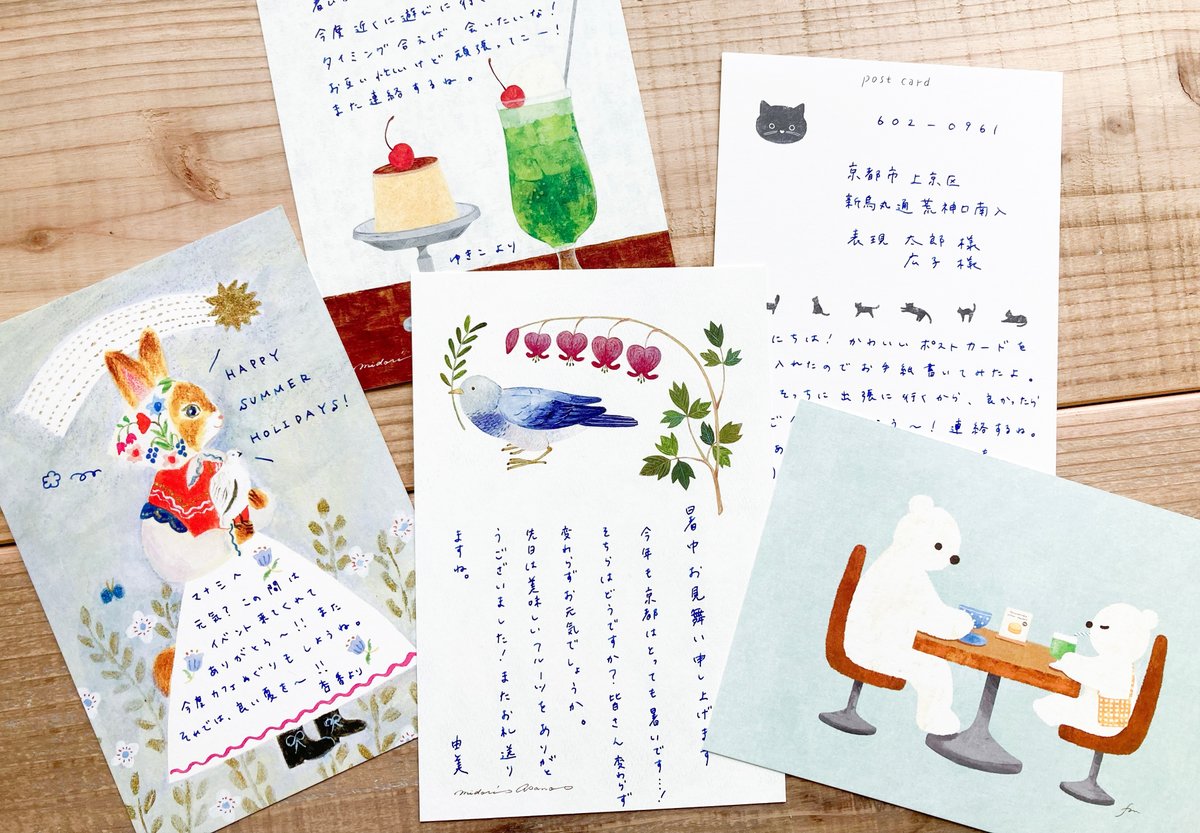 今度 近くに遊びに行く
タイミング合えば 会いたいな!
お互い忙しいけど 頑張ってこー!
また 連絡するね。
ゆきこ より
midori
post card
602-0961
京都市 上京区
新烏丸通 荒神口南入
表現 太郎 様
広子 様
にちは! かわいい ポストカードを
入れたので お手紙書いてみたよ。
そっちに 出張に 行くから、良かったら
う〜! 連絡するね。
HAPPY
SUMMER
HOLIDAYS!
マナミへ
元気? この間は
イベント来てくれて
ありがとう〜!! また
今度 カフェめぐりもしようね。
それでは、良い夏を〜!! 杏香より
暑中お見舞い申し上げます
今年も京都はとっても暑いです…!
そちらはどうですか? 皆さん変わらず
変わらずお元気でしょうか。
先日は美味しいフルーツをありがと
うございました! またお礼送り
ますね。
由美
midori asano